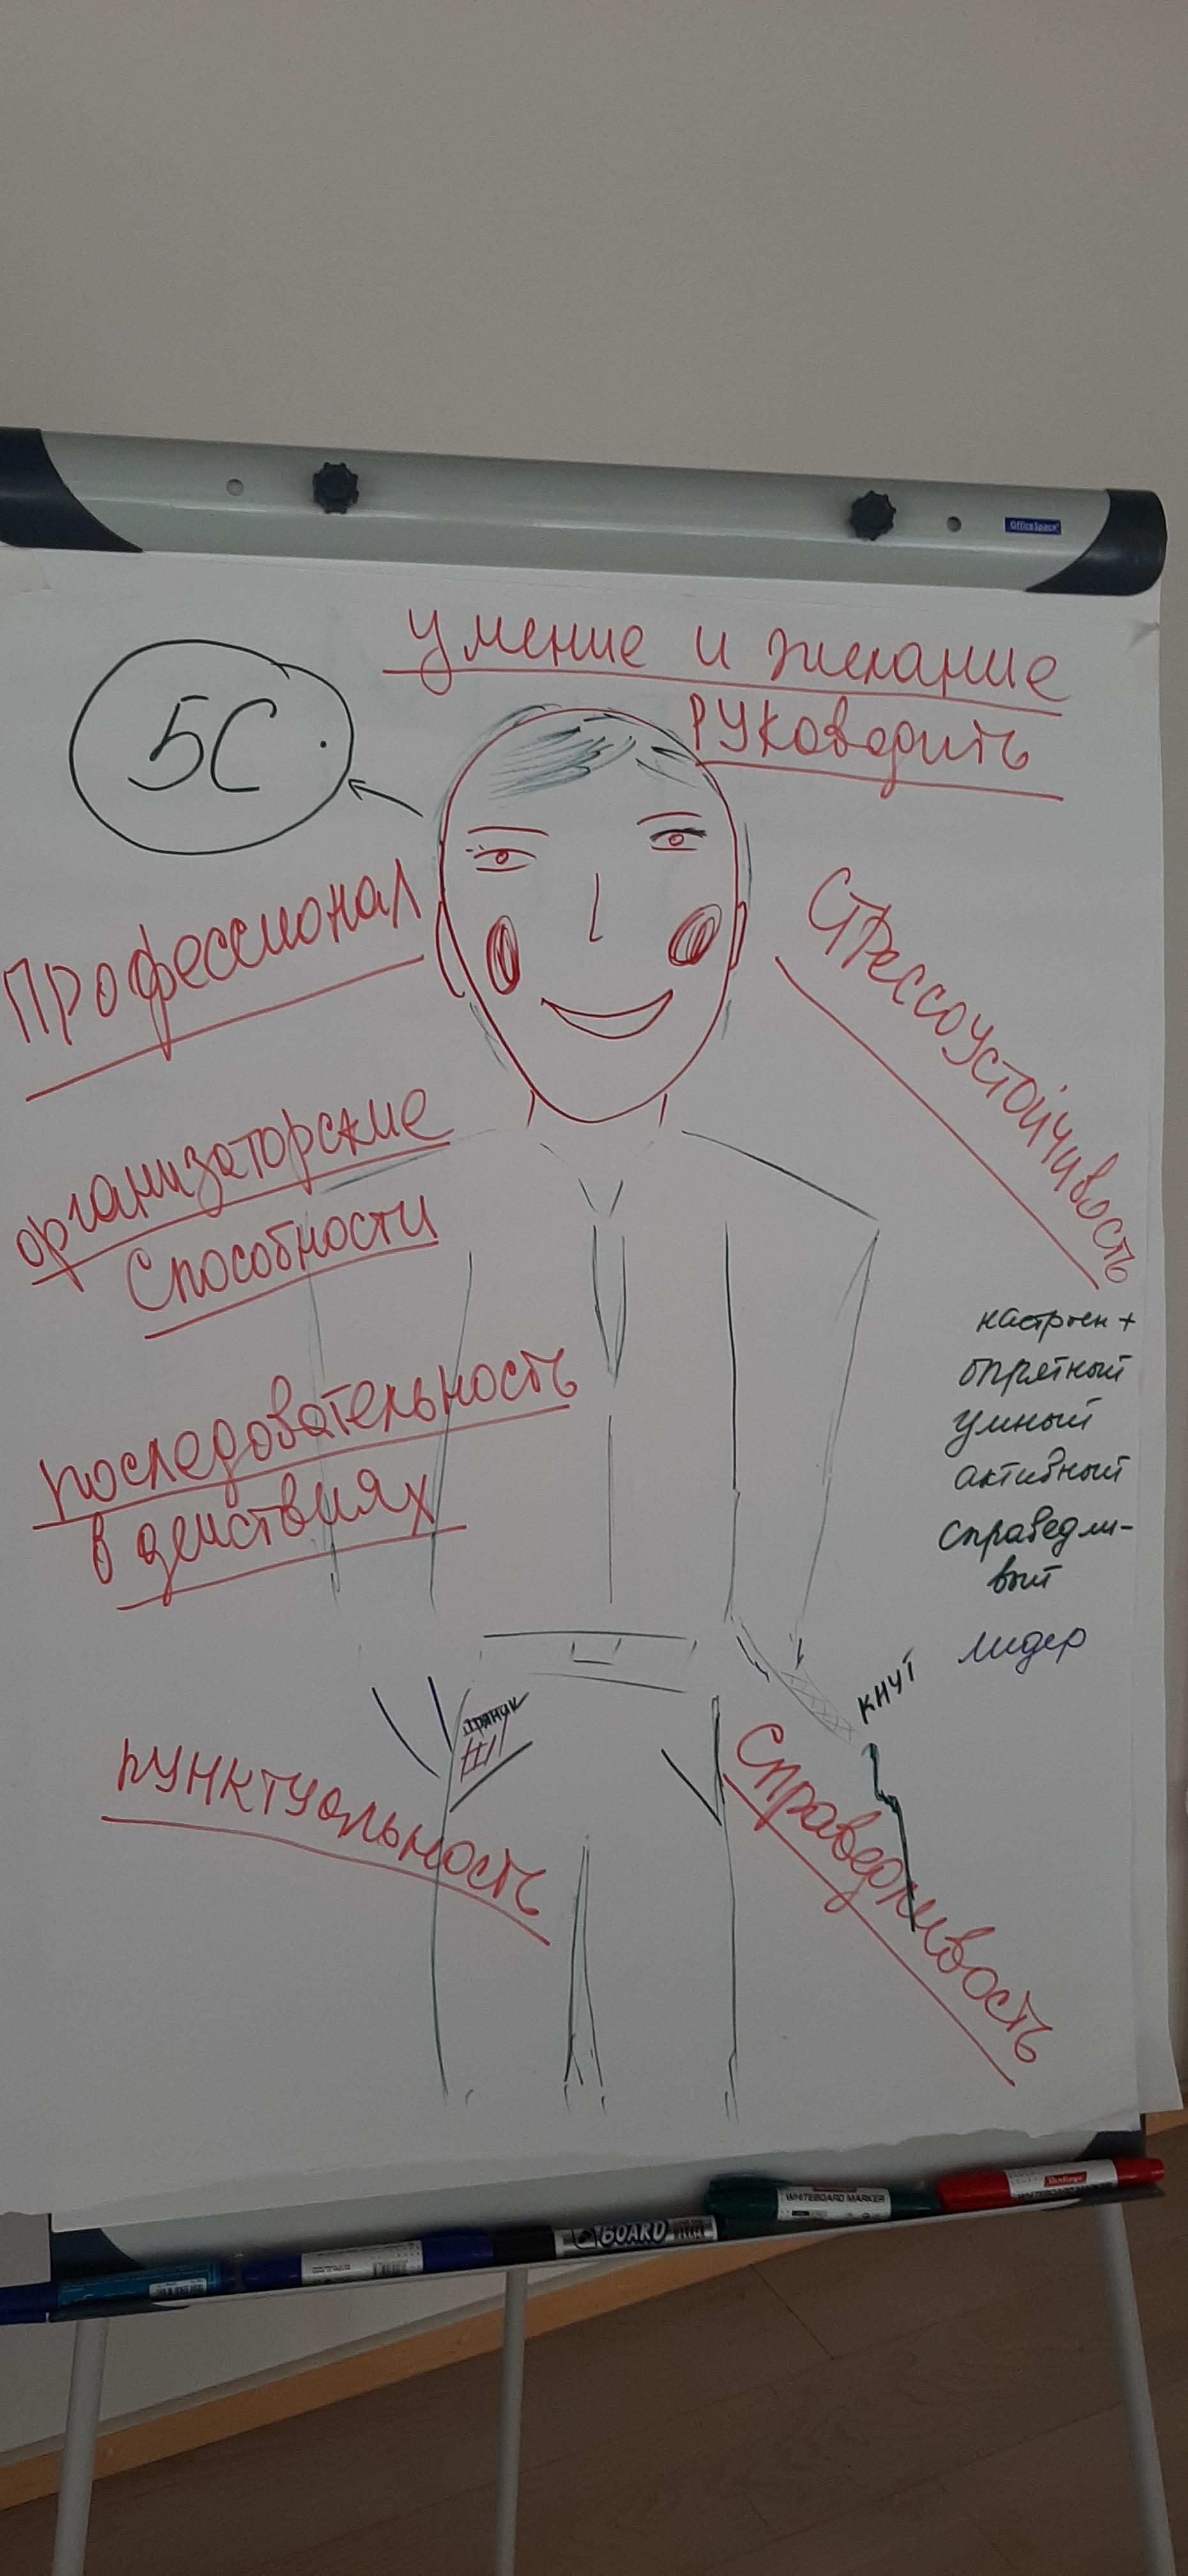 OfficeSpace
умение и желание
руководить
5С
Профессионал
Стрессоустойчивость
организаторские
способности
настроен +
опрятный
умный
активный
справедли-
вый
лидер
последовательность
в действиях
кнут
пряник
пунктуальность
Справедливость
WHITEBOARD MARKER
BOARD